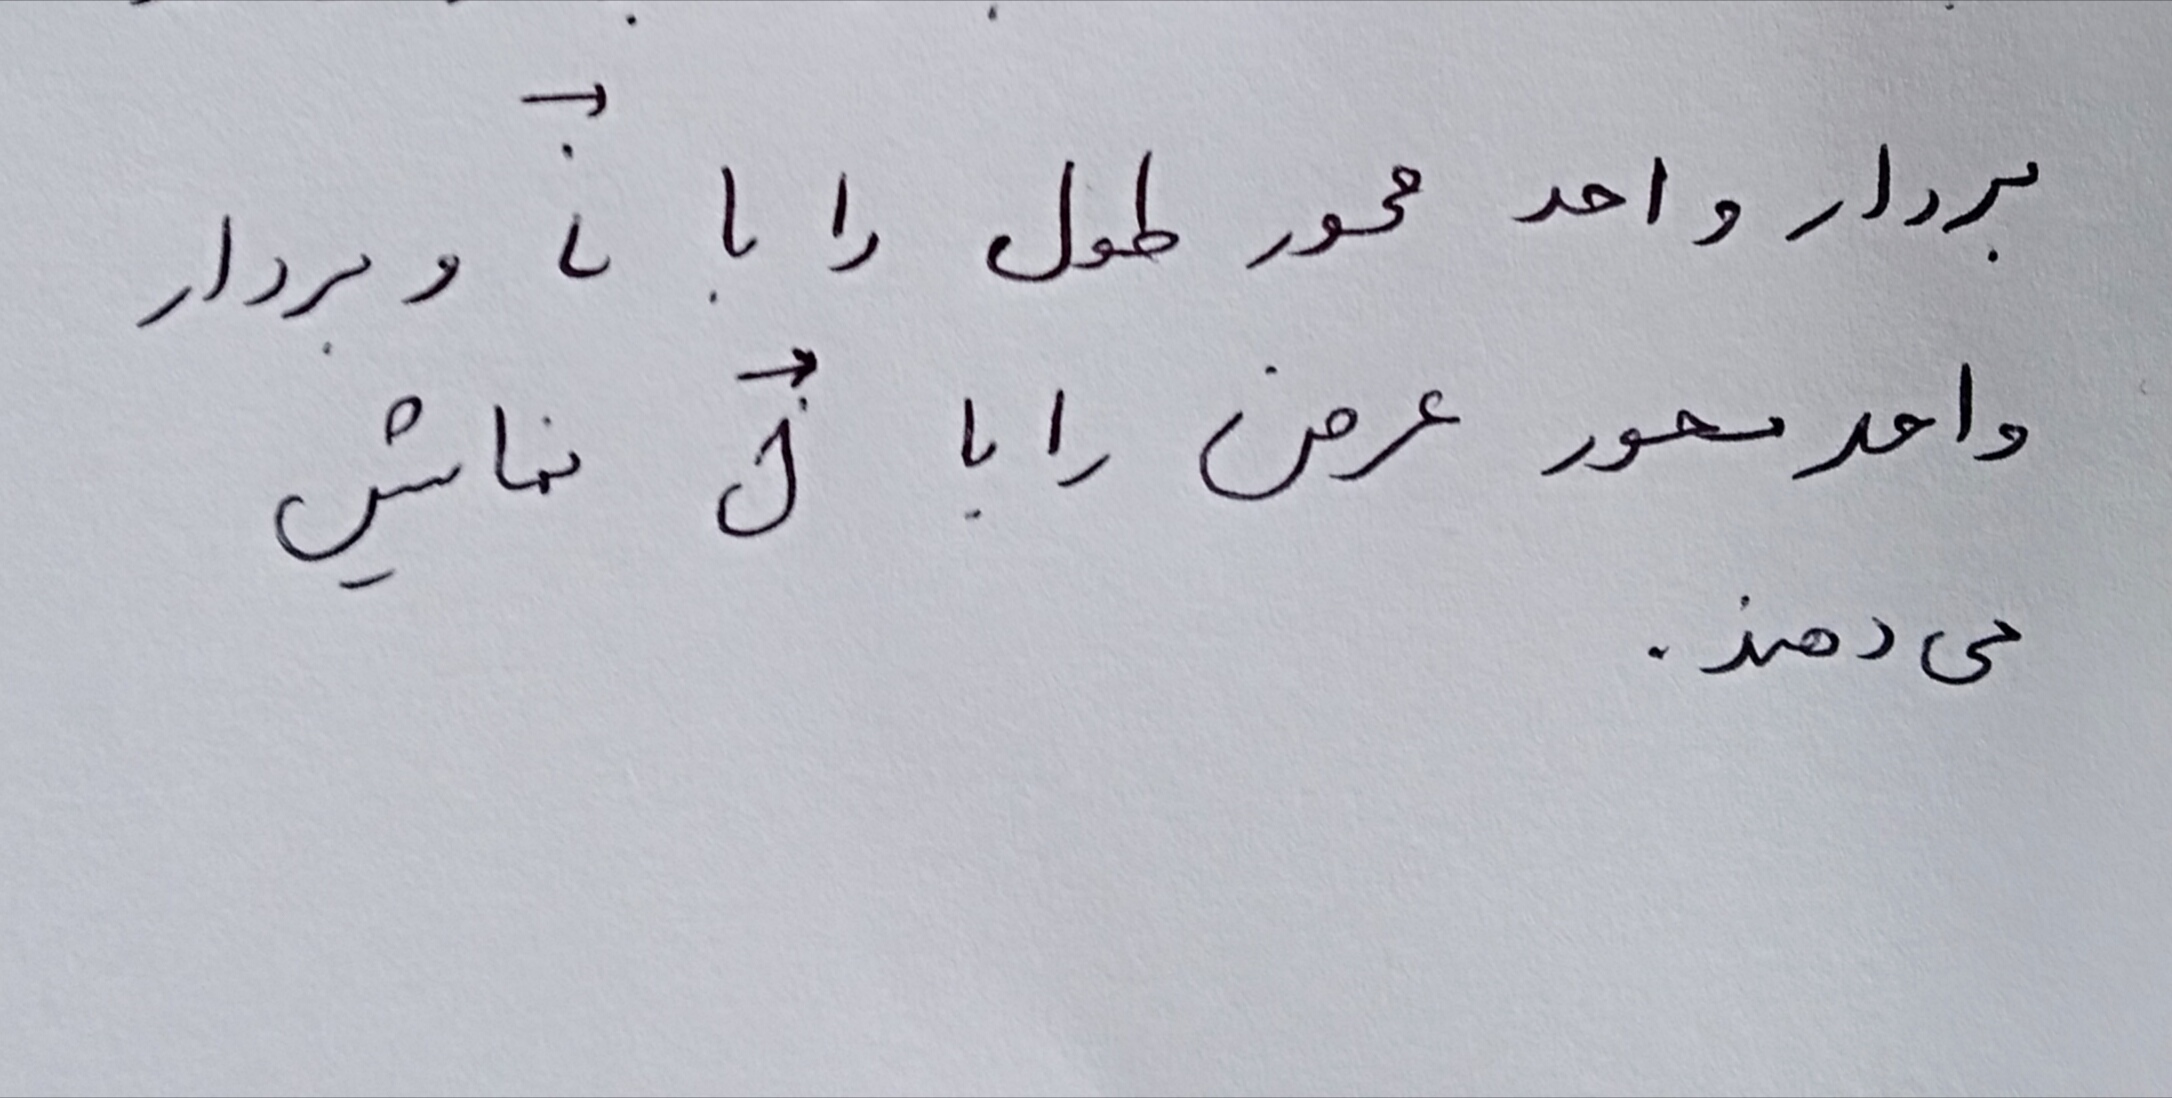 بردار واحد محور طول را با i⃗ و بردار
واحد محور عرض را با j⃗ نمایش
می دهند.